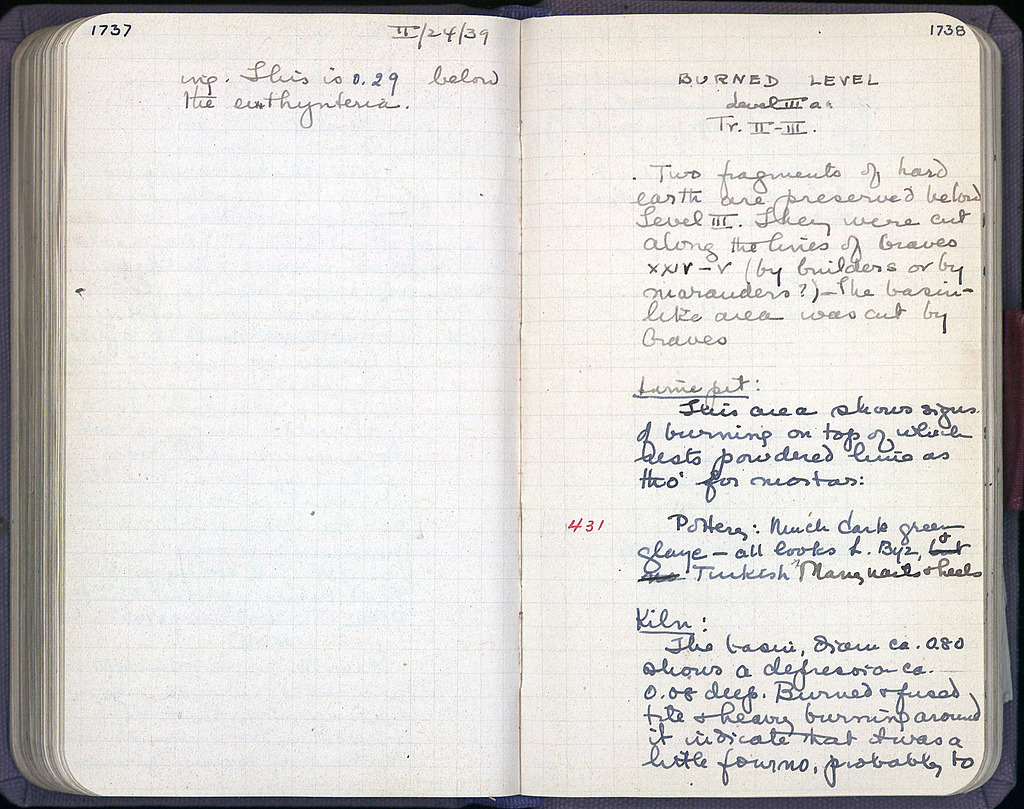 1737
II/24/39
ing. This is 0.29 below
the euthynteria.
1738
BURNED LEVEL
Level III a.
Tr. II-III.
Two fragments of hard
earth are preserved below
Level III. They were cut
along the lines of Graves
XXIV-V (by builders or by
marauders?) - The basin-
like area was cut by
Graves
Lime pit:
This area shows signs
of burning on top of which
rests powdered lime as
tho' for mortar:
431
Pottery: Much dark green
glaze - all looks L. Byz, &
Turkish. Many nails & heels
Kiln:
The basin, diam ca. 0.80
shows a depression ca.
0.08 deep. Burned & fused
tile & heavy burning around
it indicate that it was a
little fourno, probably to